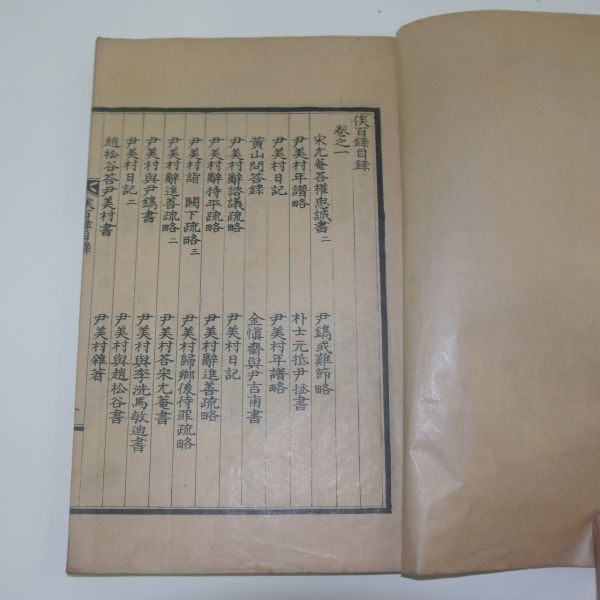 俟百錄目錄
卷之一
宋尤菴答權思誠書二 尹鑴或難節略
尹美村年譜略 朴士元抵尹拯書
尹美村日記 尹美村年譜略
黃山問答錄 金愼齋與尹吉甫書
尹美村辭諮議疏略 尹美村日記
尹美村辭持平疏略 尹美村辭進善疏略
尹美村詣 闕下疏略三 尹美村歸鄉後待罪疏略
尹美村辭進善疏略二 尹美村答宋尤菴書
尹美村與尹鑴書 尹美村與李洗馬敏迪書
尹美村日記二 尹美村與趙松谷書
趙松谷答尹美村書 尹美村雜著
俟百錄目錄